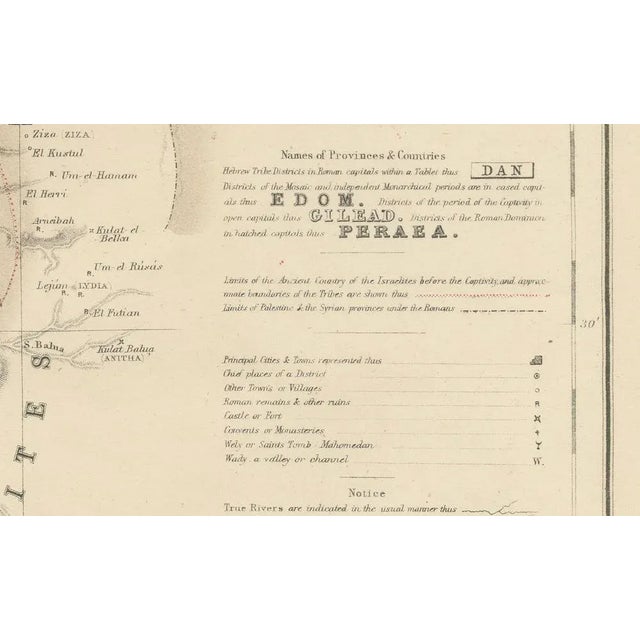 Ziza (ZIZA)
El Kustul
R. Um-el-Hamam
El Herri
R.
Arneibah
R.
Kulat-el-Belka
Um-el Rúsás
R.
Lejún LYDIA
R. R.
R. El Futian
S. Balua
Kulat Balua
(ANITHA)
ITES
Names of Provinces & Countries
Hebrew Tribe Districts in Roman capitals within a Tablet thus DAN
Districts of the Mosaic and independent Monarchical periods are in cased capi-
tals thus EDOM. Districts of the period of the Captivity in
open capitals thus GILEAD. Districts of the Roman Dominion
in hatched capitals thus PERAEA.
Limits of the Ancient Country of the Israelites before the Captivity, and approxi-
mate boundaries of the Tribes are shown thus
Limits of Palestine & the Syrian provinces under the Romans
30'
Principal Cities & Towns represented thus
Chief places of a District
Other Towns or Villages
Roman remains & other ruins R
Castle or Fort
Convents or Monasteries
Wely or Saints Tomb - Mahomedan
Wady, a valley or channel W.
Notice
True Rivers are indicated in the usual manner thus